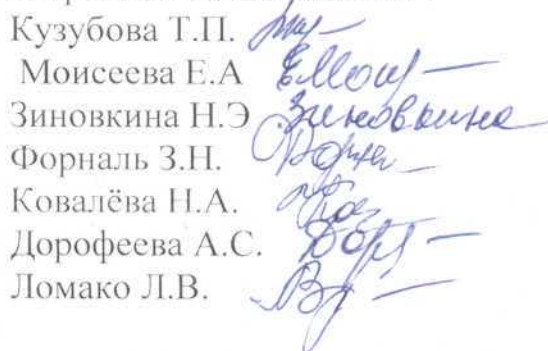 Кузубова Т.П.
Моисеева Е.А ЕМои
Зиновкина Н.Э Зиновкина
Форналь З.Н. Форн
Ковалёва Н.А.
Дорофеева А.С. Дор
Ломако Л.В.